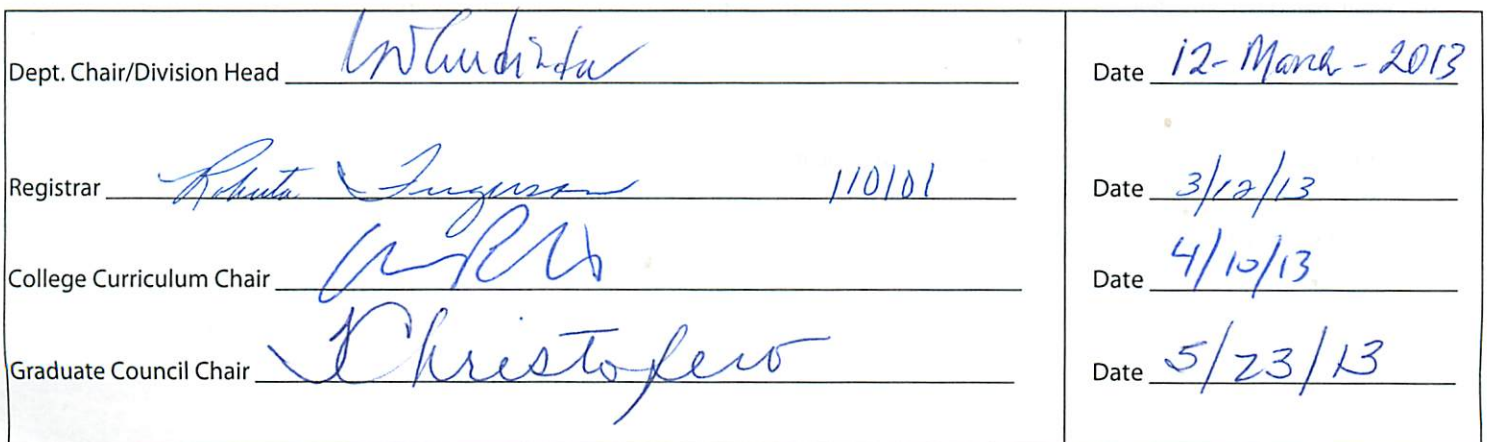 Dept. Chair/Division Head Date 12-March-2013
Registrar Roberta Ferguson 110101 Date 3/12/13
College Curriculum Chair Date 4/10/13
Graduate Council Chair Date 5/23/13